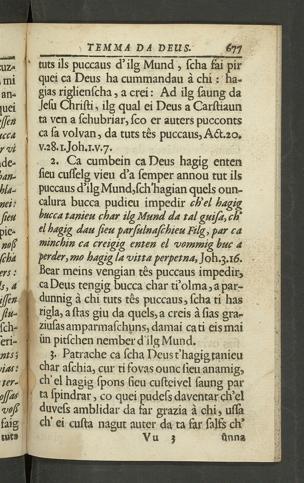 TEMMA DA DEUS. 677
tuts ils puccaus d'ilg Mund, ſcha fai pir
quei ca Deus ha cummandau à chi: ha-
gias riglienſcha, a crei: Ad ilg ſaung da
Jeſu Chriſti, ilg qual ei Deus a Carſtiaun
ta ven a ſchubriar, ſco er auters pucconts
ca ſa volvan, da tuts tês puccaus, Act. 20.
v. 28. 1. Joh. 1. v. 7.
2. Ca cumbein ca Deus hagig enten
ſieu cuſſelg vieu d'a ſemper annou tut ils
puccaus d'ilg Mund, ſch'hagian quels oun-
calura bucca pudieu impedir ch'el hagig
bucca tanieu char ilg Mund da tal guiſa, ch'
el hagig dau ſieu parſulnaſchieu Filg, par ca
minchin ca creigig enten el vommig buc a
perder, mo hagig la vitta perpetna, Joh. 3. 16.
Bear meins vengian tês puccaus impedir,
ca Deus tengig bucca char ti'olma, a par-
dunnig à chi tuts tês puccaus, ſcha ti has
rigla, a ſtas giu da quels, a creis à ſias gra-
ziuſas amparmaſchuns, damai ca ti eis mai
ün pitſchen nember d'ilg Mund.
3. Patrache ca ſcha Deus t'hagig tanieu
char aſchia, cur ti fovas ounc ſieu anamig,
ch' el hagig ſpons ſieu cuſteivel ſaung par
ta ſpindrar, co quei pudeſs daventar ch'el
duveſs amblidar da far grazia à chi, uſſa
ch' ei cuſta nagut auter da ta far ſalfs ch'
Vu 3 ünna